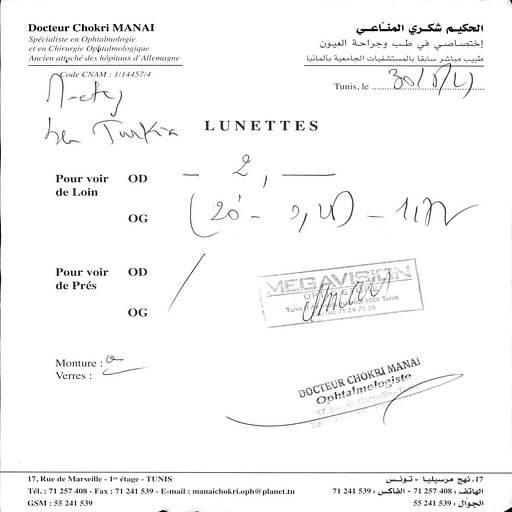 Docteur Chokri MANAI
Spécialiste en Ophtalmologie
et en Chirurgie Ophtalmologique
Ancien attaché des hôpitaux d'Allemagne
Code CNAM : 1/14457/4
الحكيم شكري المناعي
إختصاصي في طب وجراحة العيون
طبيب مباشر سابقا بالمستشفيات الجامعية بألمانيا
Tunis, le
LUNETTES
Pour voir de Loin
OD - 2,
OG
Pour voir de Prés
OD
OG
MEGAVISION
1001 Tunis
71 24 71 36
Monture :
Verres :
DOCTEUR CHOKRI MANAI
Ophtalmologiste
17, Rue de Marseille
17, Rue de Marseille - 1er étage - TUNIS
Tél. : 71 257 408 - Fax : 71 241 539 - E-mail : manaichokri.oph@planet.tn
GSM : 55 241 539
17، نهج مرسيليا - تونس
الهاتف : 408 257 71 - الفاكس : 539 241 71
الجوال : 539 241 55